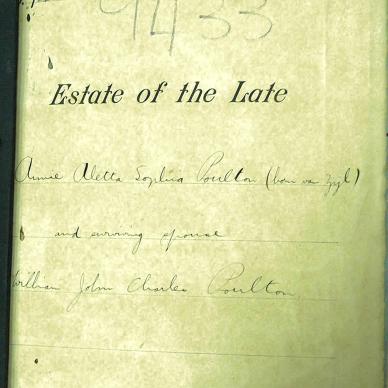 9433
Estate of the Late
Annie Aletta Sophia Poulton (born van Zyl)
and surviving spouse
William John Charles Poulton